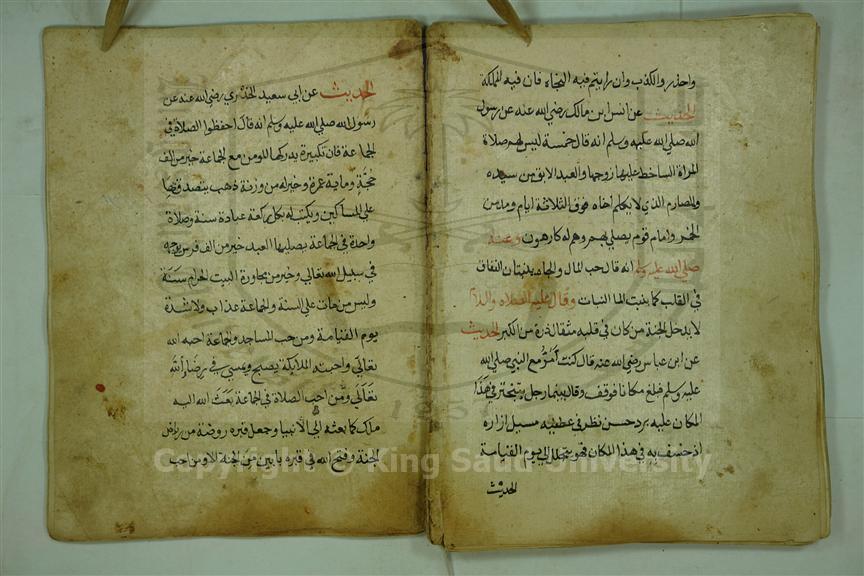 واحذر والكذب وان رايتم فيه النجاة فان فيه الهلكة
الحديث عن انس ابن مالك رضي الله عنه عن رسول
الله صلي الله عليه وسلم انه قال خمسة ليس لهم صلاة
المراة الساخط عليها زوجها والعبد الابق من سيده
والمصارم الذي لا يكلم اخاه فوق الثلاثة ايام ومدمن
الخمر وامام قوم يصلي بهم وهم له كارهون وعنه
صلي الله عليه وسلم انه قال حب المال والجاه ينبتان النفاق
في القلب كما ينبت الما النبات وقال عليه الصلاه والسلام
لا يدخل الجنة من كان في قلبه مثقال ذرة من الكبر الحديث
عن ابن عباس رضي الله عنه قال كنت امر مع النبي صلي الله
عليه وسلم فبلغ مكانا فوقف وقال بينما رجل يتبختر في هذا
المكان عليه برد حسن نظر في عطفيه مسبل ازاره
اذ خسف به في هذا المكان فهو يتجلجل الي يوم القيامة
الحديث
الحديث عن ابي سعيد الخدري رضي الله عنه عن
رسول الله صلي الله عليه وسلم انه قال احفظوا الصلاة في
الجماعة فان تكبيرة يدركها المومن مع الجماعة خير من الف
حجة وماية عمرة وخير له من وزنة ذهب يتصدق بها
علي المساكين ويكتب له بكل ركعة عبادة سنة وصلاة
واحدة في الجماعة يصليها العبد خير من الف فرس
في سبيل الله تعالي وخير من مجاورة البيت الحرام سنة
وليس من مات علي السنة والجماعة عذاب ولا شدة
يوم القيامة ومن حب المساجد والجماعة احبه الله
تعالي واحبته الملايكة يصبح ويمسي في رضاء الله
تعالي ومن احب الصلاة في الجماعة بعث الله اليه
ملك كما بعثه الي الانبيا وجعل قبره روضة من رياض
الجنة وفتح الله في قبره بابين من الجنة الا ومن احب
1957
Copyright © King Saud University